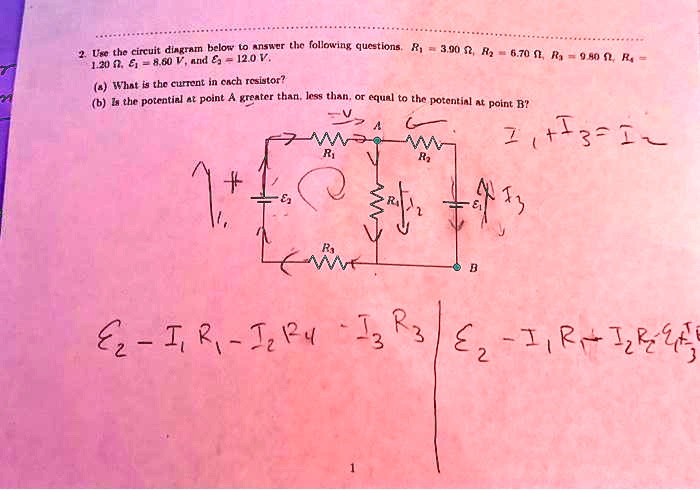 2. Use the circuit diagram below to answer the following questions. R₁ = 3.90 Ω, R₂ = 6.70 Ω, R₃ = 9.80 Ω, R₄ =
1.20 Ω, ℰ₁ = 8.60 V, and ℰ₂ = 12.0 V.
(a) What is the current in each resistor?
(b) Is the potential at point A greater than, less than, or equal to the potential at point B?
A
R₁
R₂
I₁ + I₃ = I₂
+
ℰ₂
R₄
I₂
ℰ₁
I₃
I₁
R₃
B
ℰ₂ - I₁ R₁ - I₂ R₄ - I₃ R₃
ℰ₂ - I₁ R₁
1